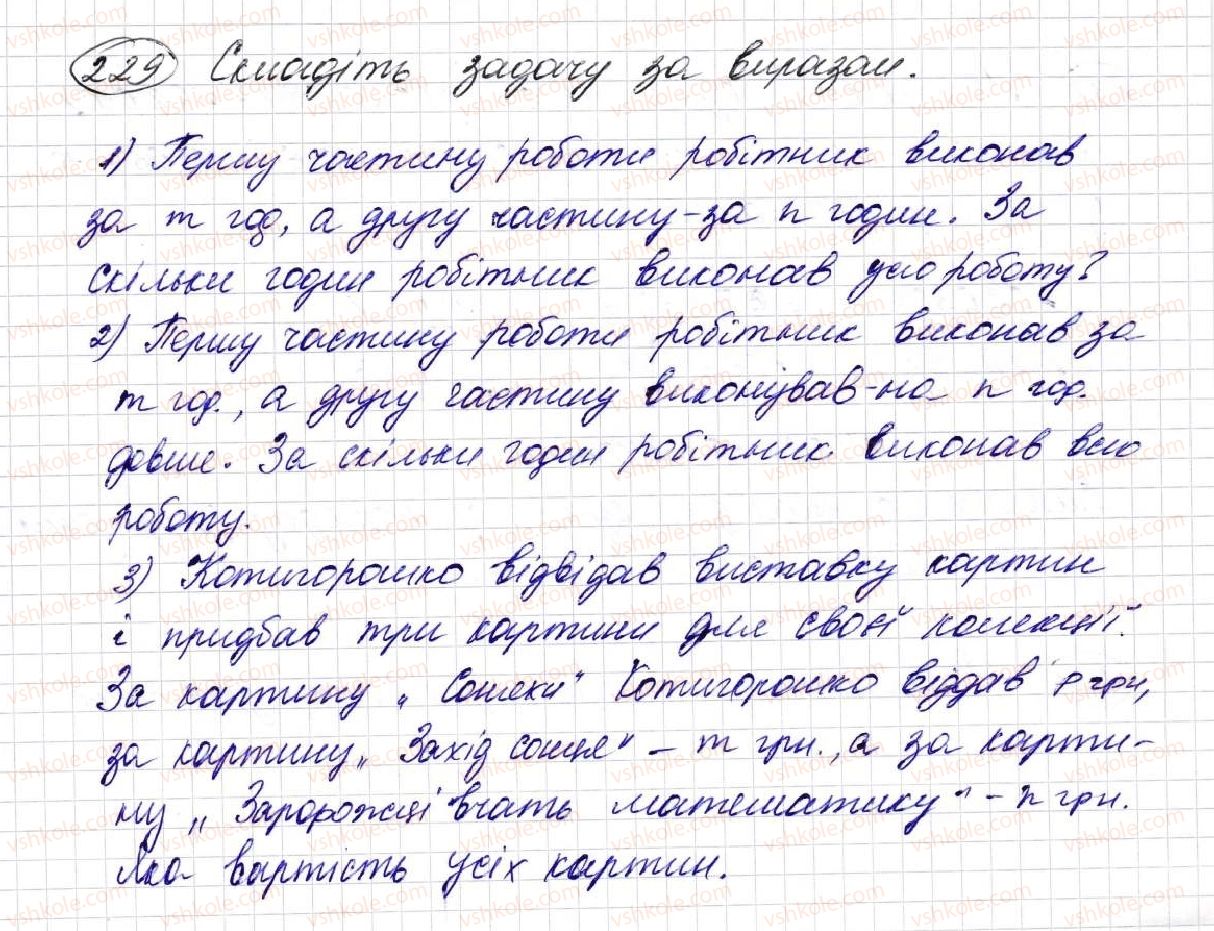 229 Складіть задачу за виразом.
1) Першу частину роботи робітник виконав
за m год, а другу частину - за n годин. За
скільки годин робітник виконав усю роботу?
2) Першу частину роботи робітник виконав за
m год., а другу частину виконував - на n год.
довше. За скільки годин робітник виконав всю
роботу.
3) Котигорошко відвідав виставку картин
і придбав три картини для своєї колекції.
За картину „Соняхи" Котигорошко віддав p грн,
за картину „Захід сонця" - m грн., а за карти-
ну „Запорожці вчать математику" - n грн.
Яка вартість усіх картин.